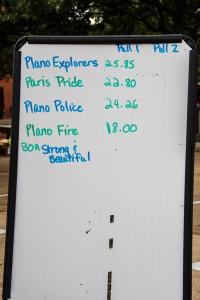 Pull 1 Pull 2
Plano Explorers 25.85
Paris Pride 22.80
Plano Police 24.26
Plano Fire 18.00
BOA Strong &
Beautiful